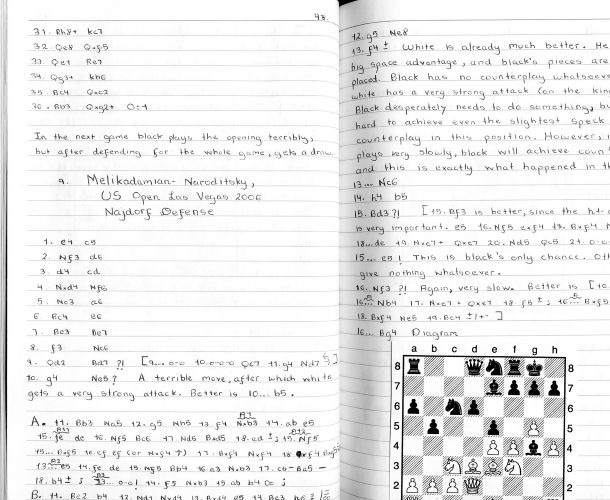 48.
31. Rh8+ Kc7
32. Qe8 Qxf5
33. Qe1 Re7
34. Qg3+ Kb6
35. Bc4 Qxc2
36. Bb3 Qxg2+ 0:1
In the next game black plays the opening terribly,
but after defending for the whole game, gets a draw.
9. Melikadamian - Naroditsky,
US Open Las Vegas 2006
Najdorf Defense
1. e4 c5
2. Nf3 d6
3. d4 cd
4. Nxd4 Nf6
5. Nc3 a6
6. Bc4 e6
7. Be3 Be7
8. f3 Nc6
9. Qd2 Bd7 ?! [9... 0-0 10.0-0-0 Qc7 11.g4 Nd7
10. g4 Ne5? A terrible move, after which white
gets a very strong attack. Better is 10... b5.
A. 11. Bb3 Na5 12. g5 Nh5 13. f4 Nxb3 14. ab e5
15. fe de 16. Nf5 Bc6 17. Nd5 Bxd5 18. ed ±; 15. Nf5
15... Bxf5 16. ef ef (or Nxf4) 17. Bxf4 Nxf4 18. Qxf4
13... e5 14. fe de 15. Nf5 Bb4 16. a3 Nxb3 17. cb Ba5 -
18. b4 ±; 13... 0-0! 14. f5 Nxb3 15. ab b4 ∞;
B. 11. Be2 b4 12. Nd1 Nxd4 13. Bxd4 e5 14. Be3 h6
12. g5 Ne8
13. f4 ± White is already much better. He
big space advantage, and black's pieces are
placed. Black has no counterplay whatsoever
white has a very strong attack (on the king
Black desperately needs to do something, bu
hard to achieve even the slightest speck
counterplay in this position. However,
plays very slowly, black will achieve coun
and this is exactly what happened in th
13... Nc6
14. h4 b5
15. Bd3?! [15. Bf3 is better, since the h1-
is very important. e5 16. Nf5 exf4 17. Bxf4 N
18... de 19. Nxe7+ Qxe7 20. Nd5 Qc5 21. 0-0-
15... e5! This is black's only chance. Oth
give nothing whatsoever.
16. Nf3 ?! Again, very slow. Better is [16.
16... Nb4 17. Nxe7+ Qxe7 18. f5 ±; 16... Bxf5
18. Bxf4 Ne5 19. Bc4 ±/+- ]
16... Bg4 Diagram
a b c d e f g h
8 8
7 7
6 6
5 5
4 4
3 3
2 2